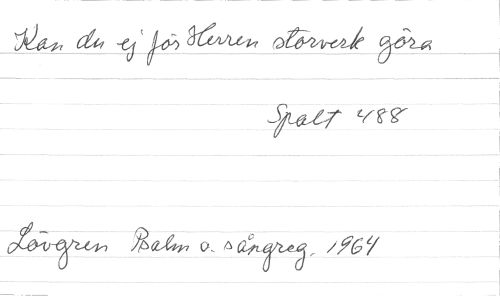 Kan du ej för Herren storverk göra
Spalt 488
Lövgren Psalm o. sångreg. 1964